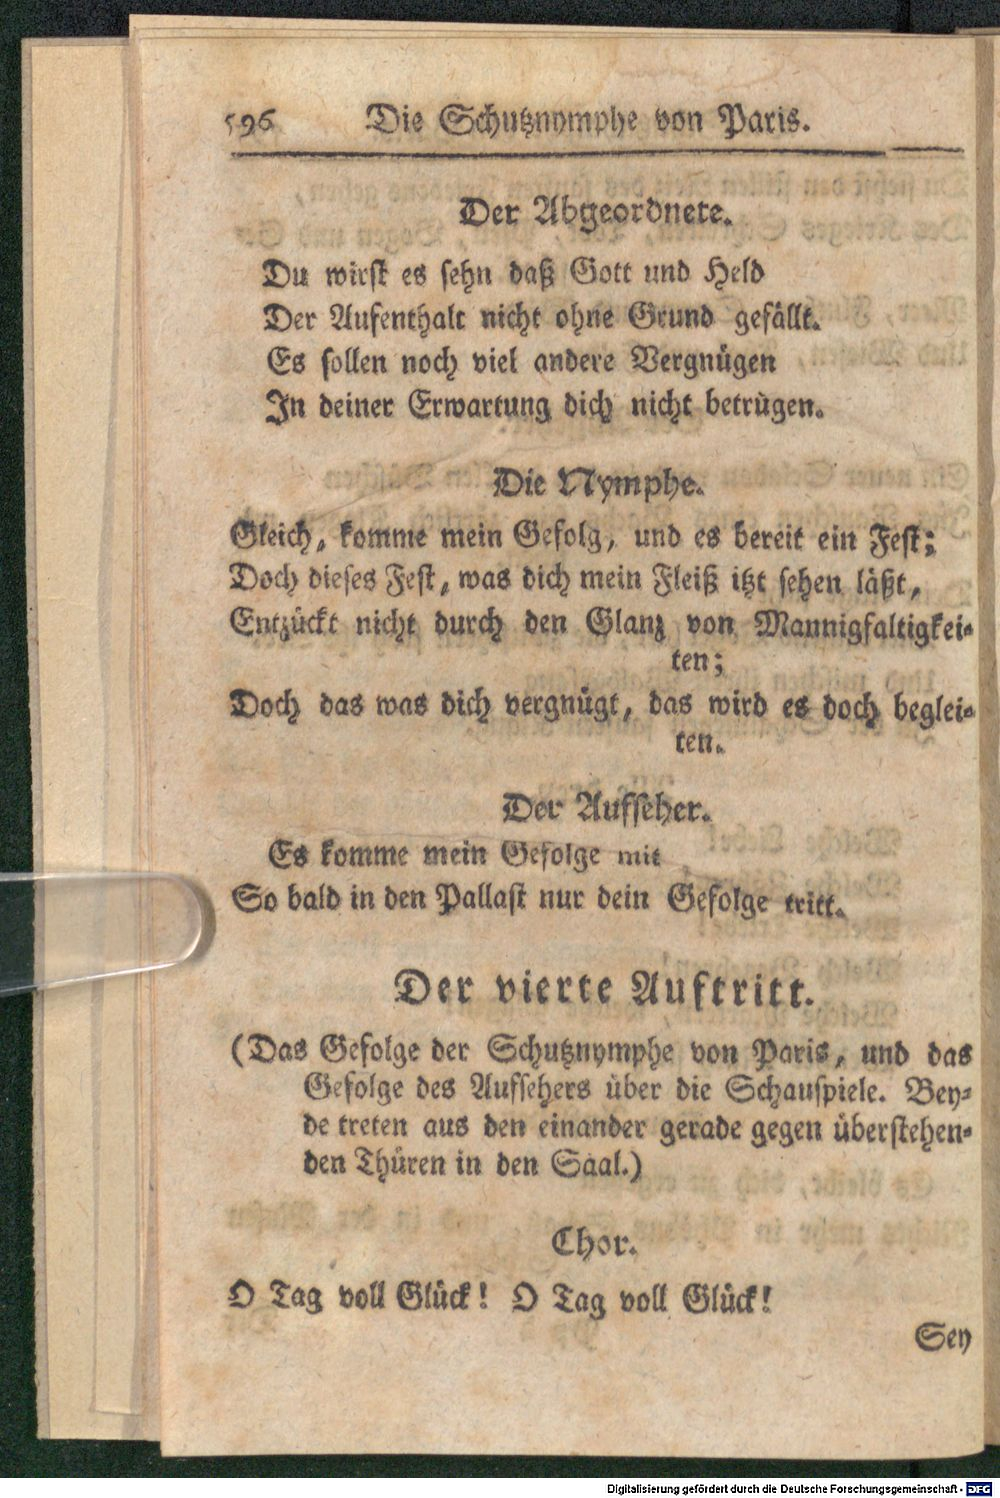 596 Die Schutznymphe von Paris.
Der Abgeordnete.
Du wirst es sehn daß Gott und Held
Der Aufenthalt nicht ohne Grund gefällt.
Es sollen noch viel andere Vergnügen
In deiner Erwartung dich nicht betrügen.
Die Nymphe.
Gleich, komme mein Gefolg, und es bereit ein Fest;
Doch dieses Fest, was dich mein Fleiß itzt sehen läßt,
Entzückt nicht durch den Glanz von Mannigfaltigkei-
ten;
Doch das was dich vergnügt, das wird es doch beglei-
ten.
Der Aufseher.
Es komme mein Gefolge mit
So bald in den Pallast nur dein Gefolge tritt.
Der vierte Auftritt.
(Das Gefolge der Schutznymphe von Paris, und das
Gefolge des Aufsehers über die Schauspiele. Bey-
de treten aus den einander gerade gegen überstehen-
den Thüren in den Saal.)
Chor.
O Tag voll Glück! O Tag voll Glück!
Sey
Digitalisierung gefördert durch die Deutsche Forschungsgemeinschaft - DFG